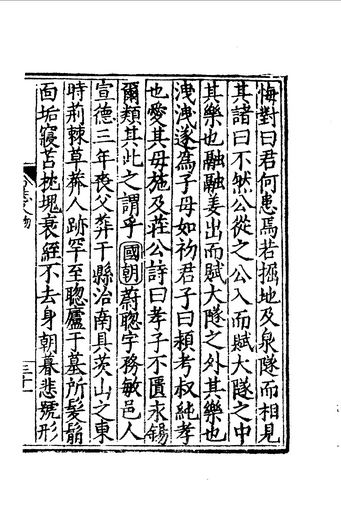 悔對曰君何患焉若掘地及泉隧而相見
其誰曰不然公從之公入而賦大隧之中
其樂也融融姜出而賦大隧之外其樂也
洩洩遂為子母如初君子曰頴考叔純孝
也愛其母施及莊公詩曰孝子不匱永錫
爾類其此之謂乎國朝蔚聰字務敏邑人
宣德三年喪父葬于縣治南具茨山之東
時荊棘草莽人跡罕至聰廬于墓所髪鬅
面垢寢苫枕塊衰絰不去身朝暮悲號形
三十一